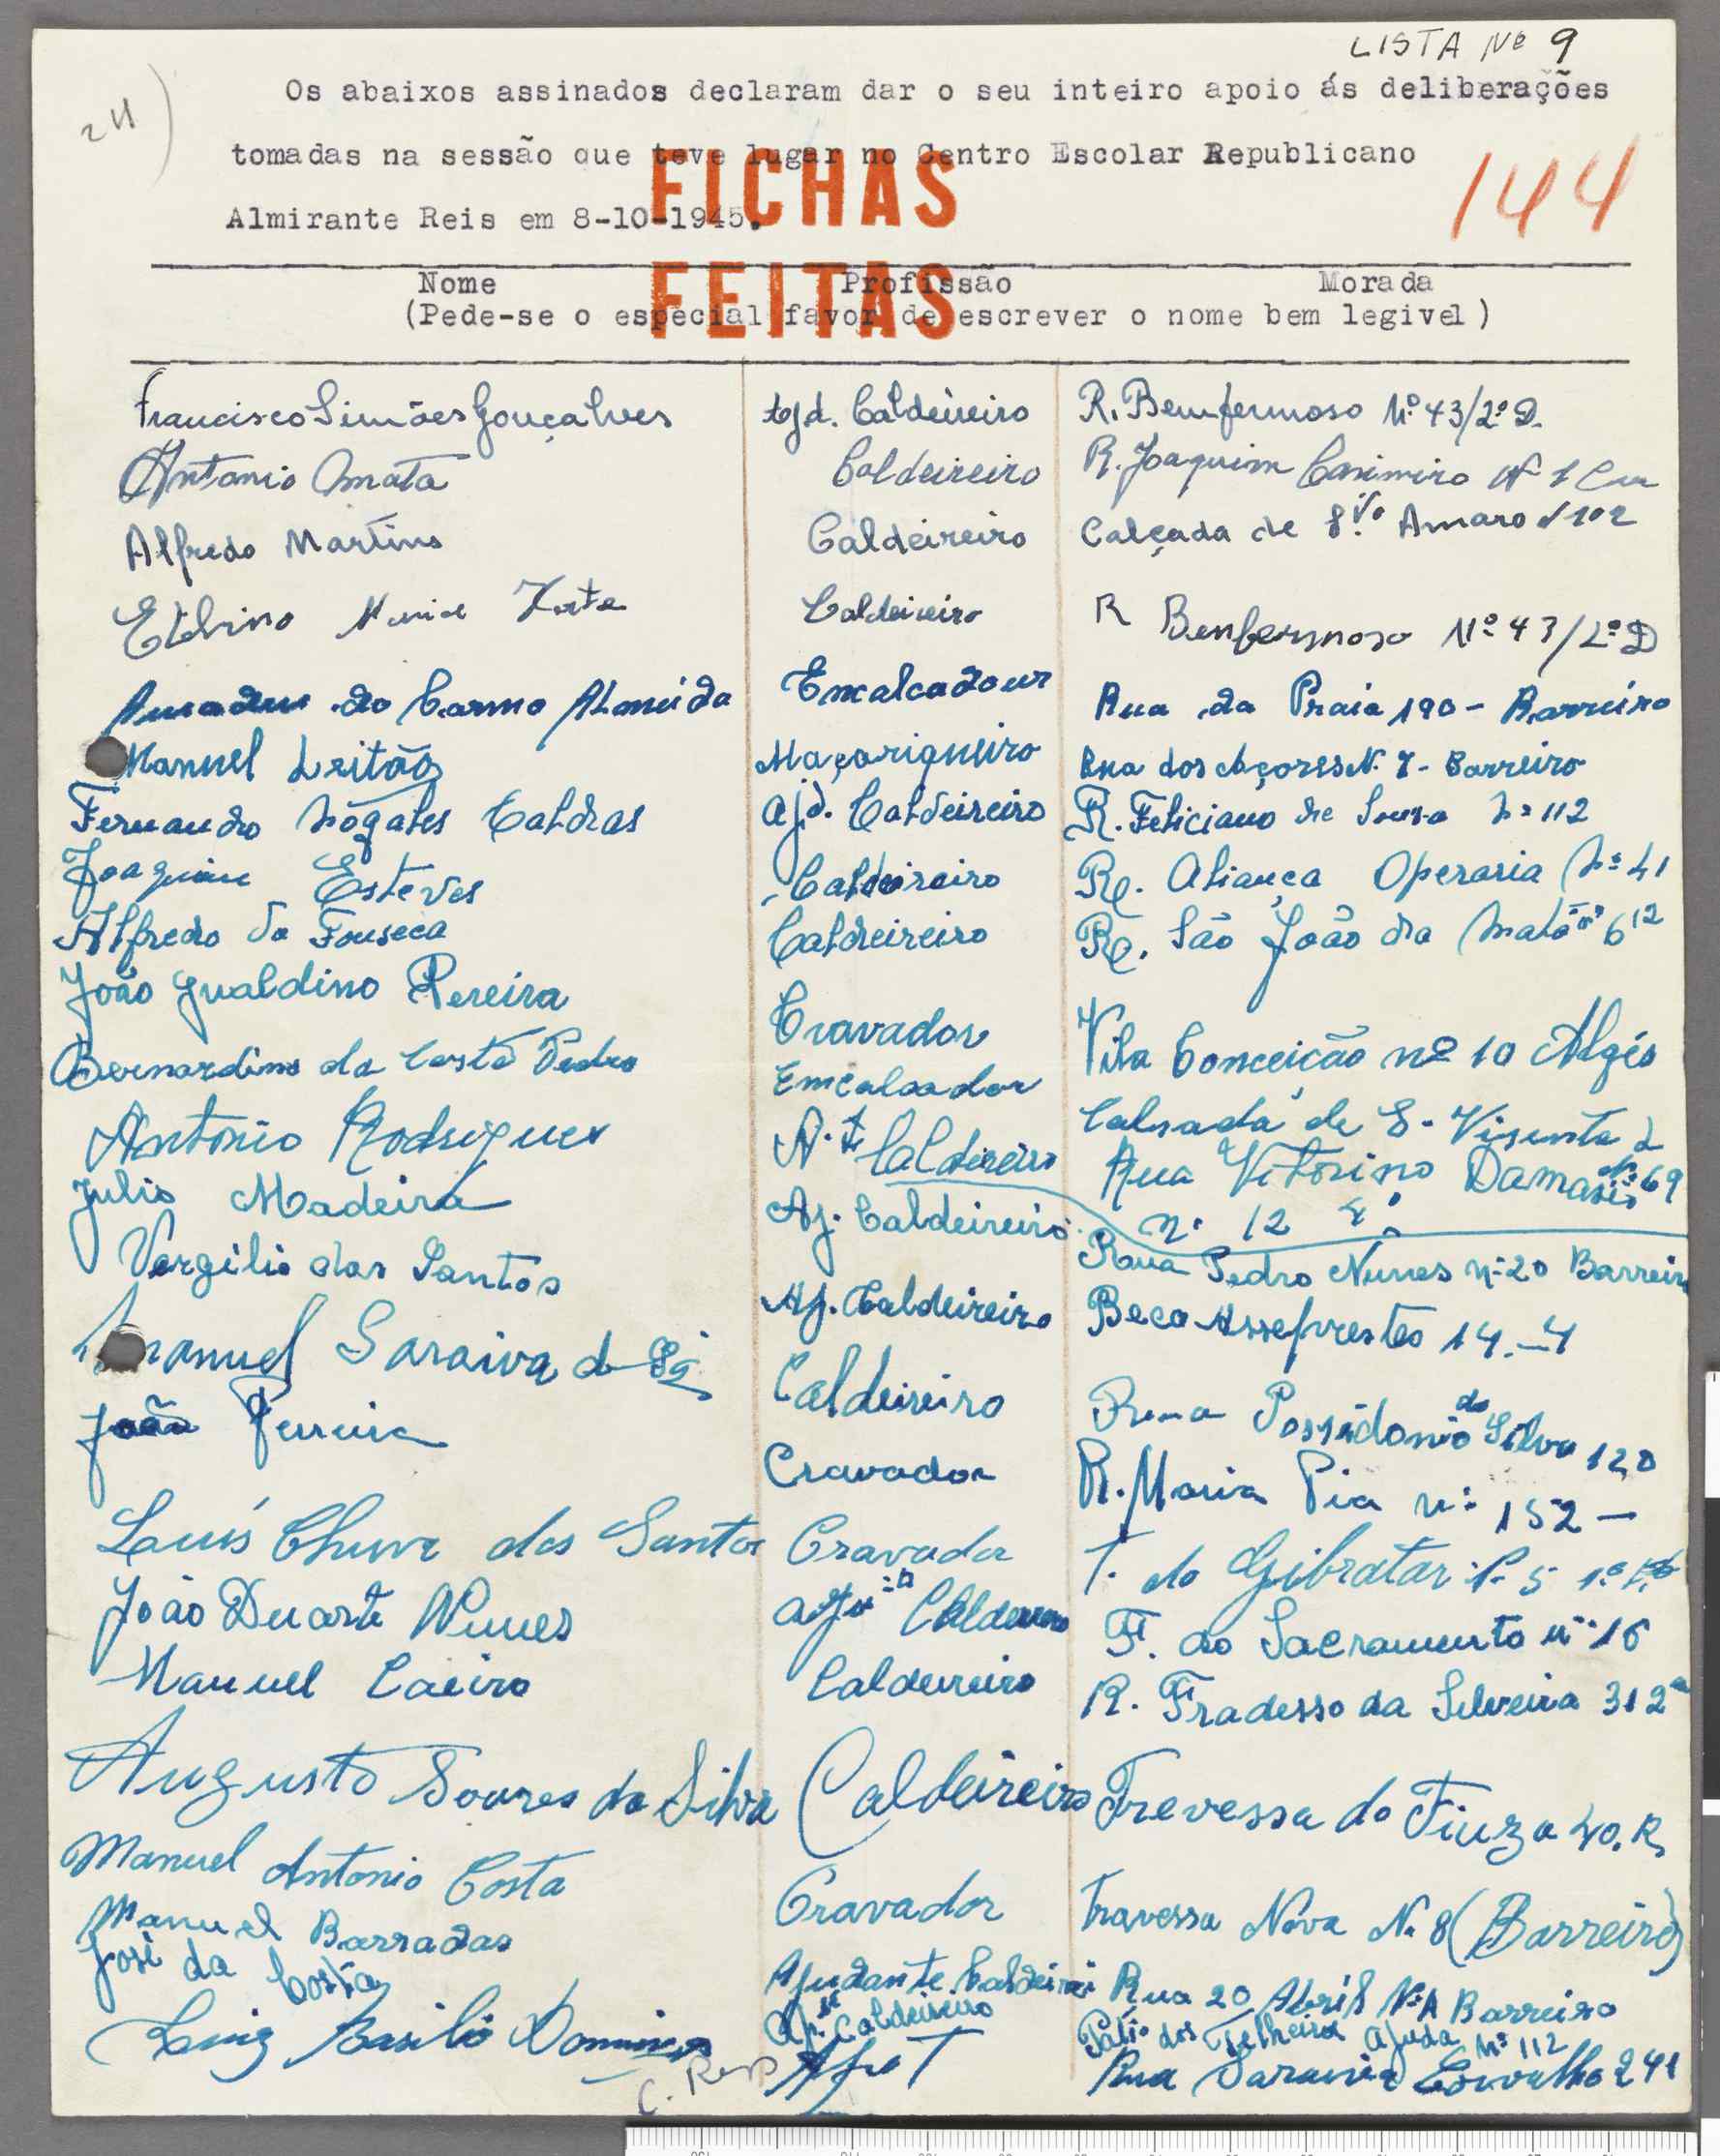 LISTA Nº 9
24)
Os abaixos assinados declaram dar o seu inteiro apoio ás deliberações
tomadas na sessão que teve lugar no Centro Escolar Republicano
144
Almirante Reis em 8-10-1945.
FICHAS
FEITAS
Nome Profissão Morada
(Pede-se o especial favor de escrever o nome bem legivel)
Francisco Simões Gonçalves Ajd. Caldeireiro R. Bemfermoso Nº 43/2º D.
Antonio Amata Caldeireiro R. Joaquim Casimiro Nº 1
Alfredo Martins Caldeireiro Calçada de Sto Amaro 102
Caldeireiro R Benfermoso Nº 43/2º D
Amadeu do Carmo Almeida Encalcadour Rua da Praia 190 - Barreiro
Manuel Leitão Maçariqueiro Rua dos Açores N. 7 - Barreiro
Fernando Nogales Caldas Ajd. Caldeireiro R. Feliciano de Sousa Nº 112
Joaquim Esteves Caldeireiro R. Aliança Operaria Nº 41
Alfredo da Fonseca Caldeireiro R. São João da Mata nº 6
João Gualdino Pereira Cravador Vila Conceição nº 10 Algés
Bernardino da Costa Pedro Emcalcador Calsada de S. Visente
Antonio Rodrigues Caldeireiro Rua Vitorino Damasio Nº 69
n. 12
Julio Madeira Aj. Caldeireiro Rua Pedro Nunes nº 20 Barreiro
Vergilio dos Santos Aj. Caldeireiro Beco 14.-4
Manuel Saraiva de Sá Caldeireiro Rua Possidonio da Silva 120
João Ferreira Cravador R. Maria Pia nº 152 -
Luís Chuva dos Santos Cravador T. do Gibraltar 5 1.º
João Duarte Nunes Caldeireiro T. do Sacramento nº 16
Manuel Caeiro Caldeireiro R. Fradesso da Silveira 31 2º
Augusto Soares da Silva Caldeireiro Trevessa do Fiuza 40. R
Manuel Antonio Costa Cravador Travessa Nova Nº 8 (Barreiro)
Manuel Barradas Ajudante Caldeirei Rua 20 Abril Nº A Barreiro
José da Costa Aj. Caldeireiro Patio dos Telheiros Ajuda Nº 112
Luiz Basilio Domingos Rua Saraiva Carvalho 241